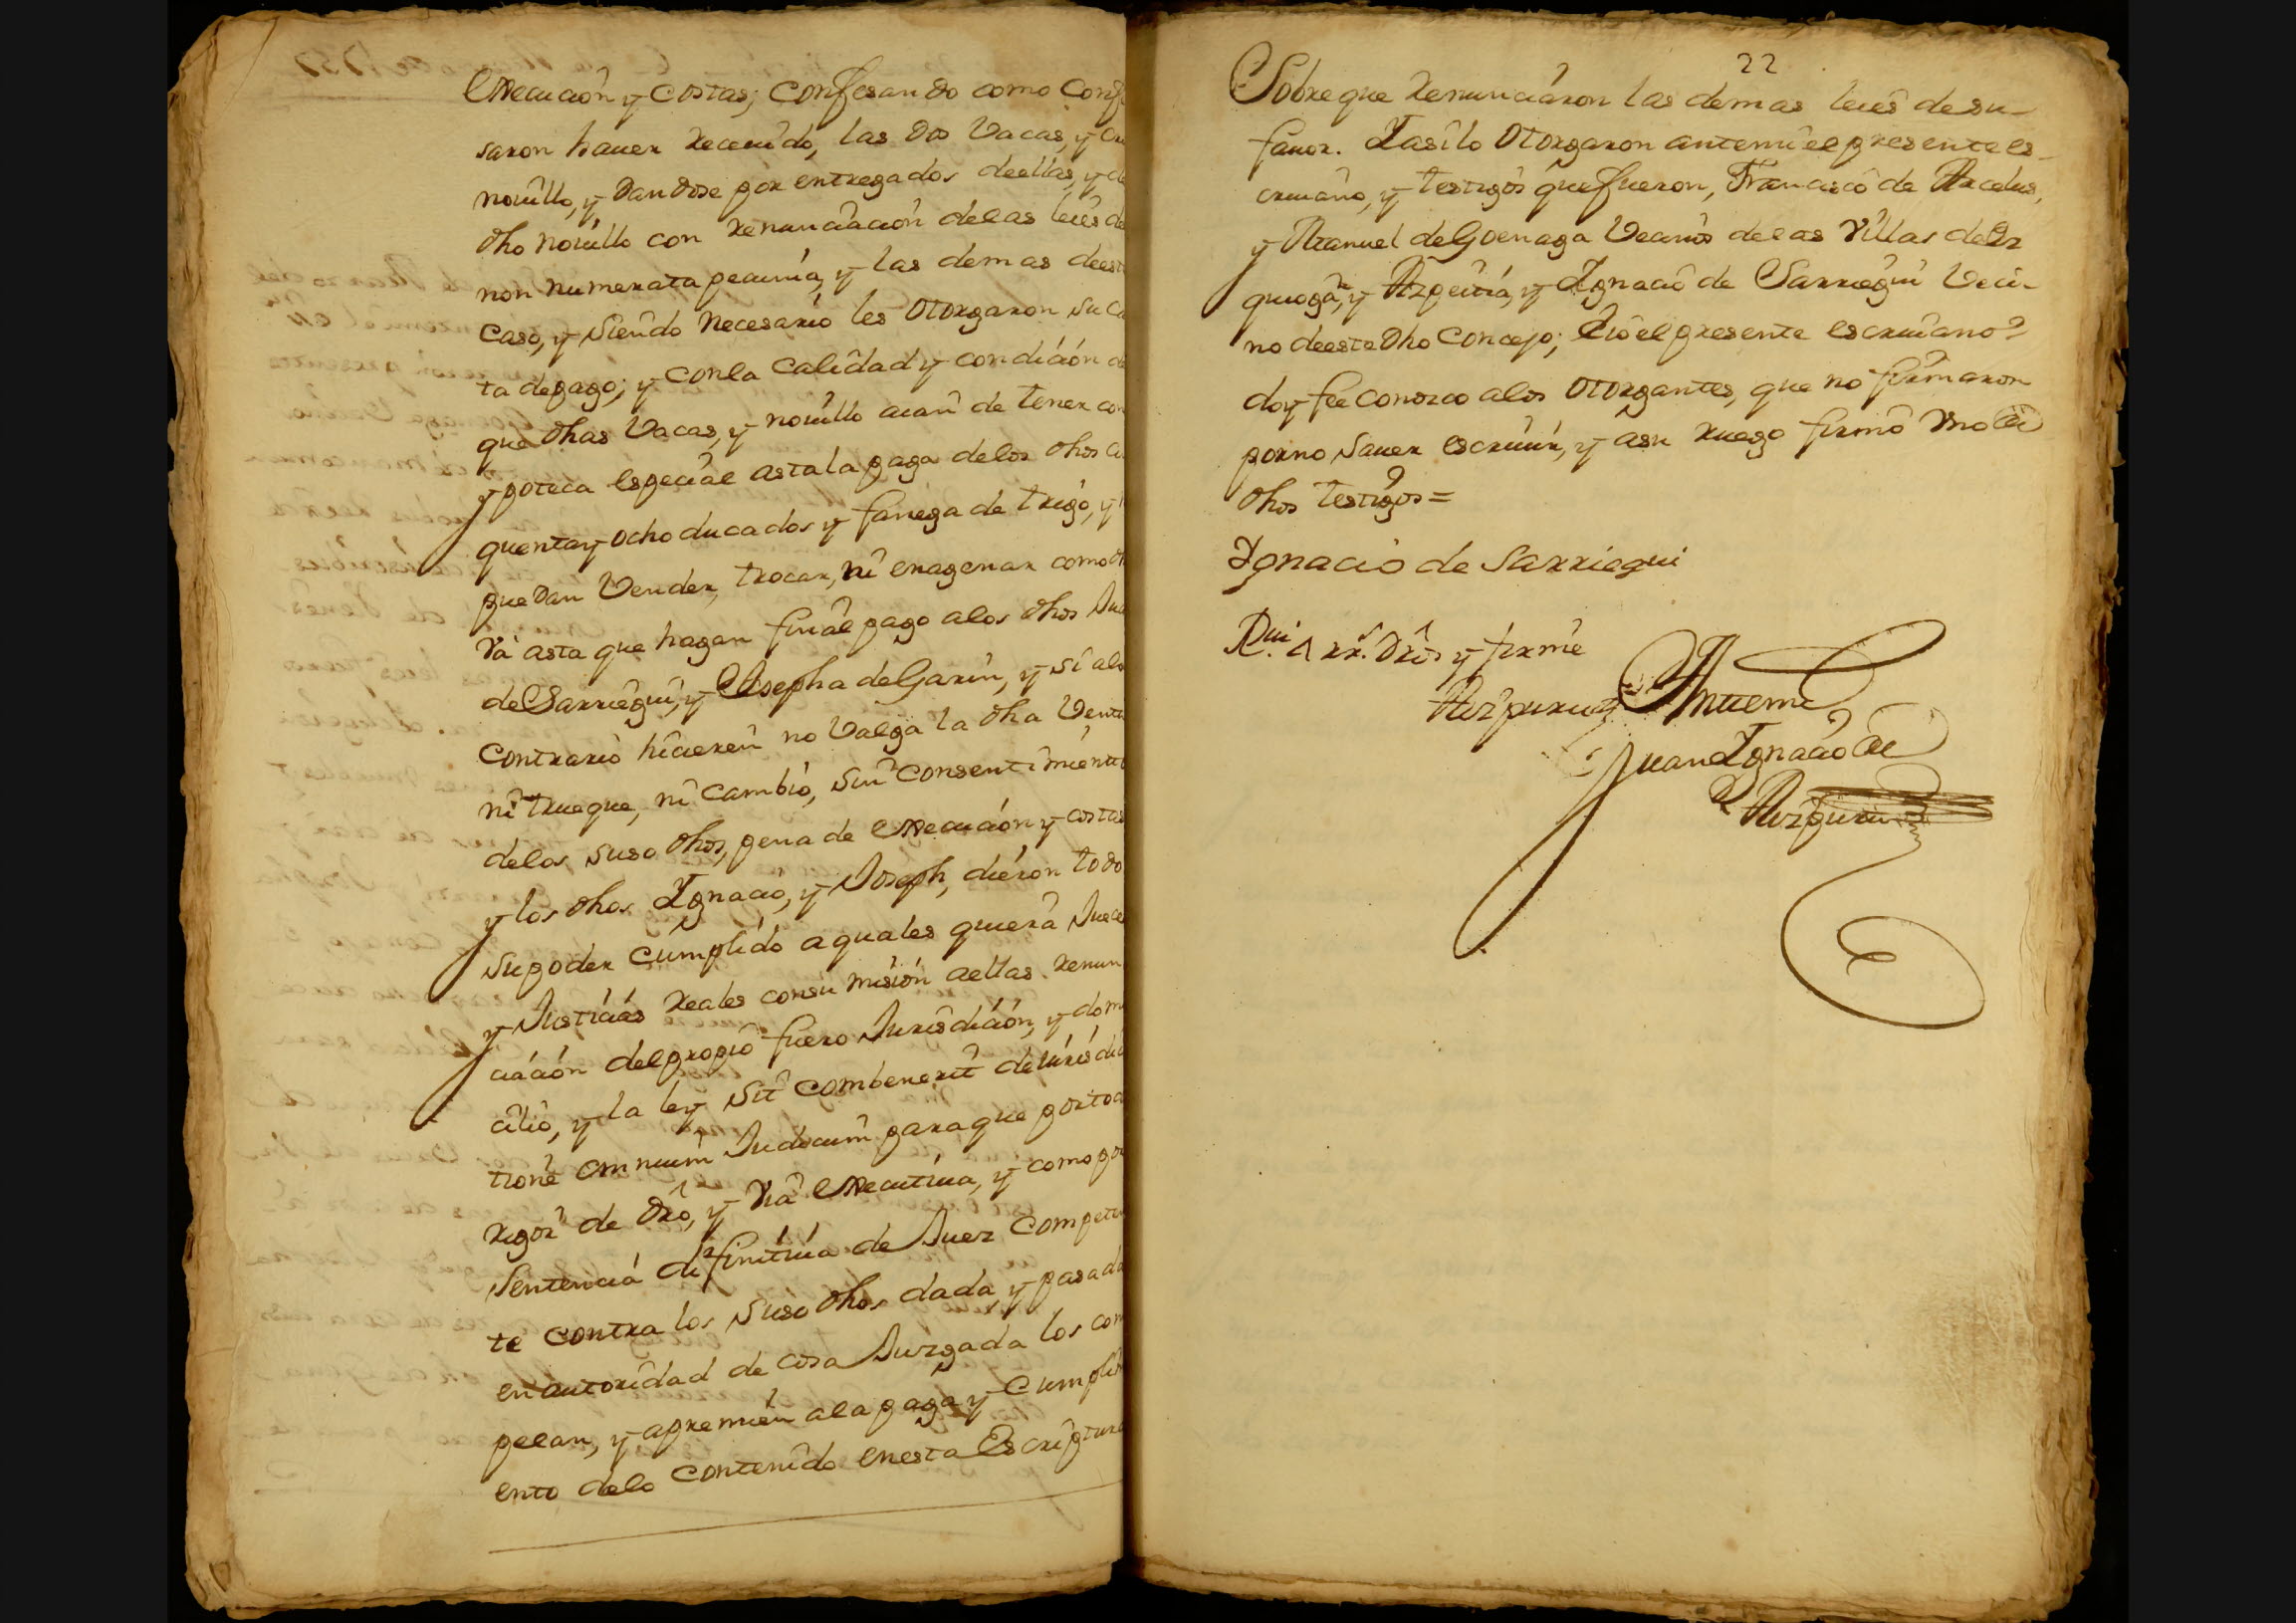 execucion y costas; confesando como conf
saron hauer receuido, las dos Vacas, y
nouillo, y dandose por entregados deellas, y
dho nouillo con renunciacion delas leies de
non numerata pecunia, y las demas deest
caso, y siendo necesario les otorgaron su ca
ta depago; y conla calidad y condicion de
que dhas Vacas, y nouillo aian de tener con
ypoteca especial asta la paga delos dhos
quentay ocho ducados y fanega de trigo, y
puedan Vender, trocar, ni enagenar como
Va asta que hagan final pago alos dhos Jua
de Sarriegui, y Josepha de Garin, y si alo
contrario hicieren no Valga la dha Venta
ni trueque, ni cambio, sin consentimiento
delos suso dhos, pena de execucion y costas
y los dhos Ignacio, y Joseph, dieron todo
supoder cumplido a quales quiera Juece
y Justicias reales consu mision aellas renun
ciacion delpropio fuero Jurisdicion, y domi
cilio, y la ley sit combenerit de iurisdic
tione omnium Judicum paraque portod
rigor de dro, y Via executiua, y como por
sentencia difinitiua de Juez competen
te contra los suso dhos dada, y pasada
en autoridad de cosa Juzgada los com
pelan, y apremien ala paga y cumplimi
ento delo contenido enesta Escriptura
22
Sobre que renunciaron las demas leies de su
fauor. Iasilo otorgaron antemi el presente es
criuano, y testigos que fueron, Francisco de Arcelus,
y Manuel de Goenaga Vecinos delas Villas de Ez
quioga, y Azpeitia, y Ignacio de Sarriegui Veci
no deeste dho Concejo; E io el presente escriuano
doy fee conozco alos otorgantes, que no firmaron
porno sauer escriuir, y asu ruego firmo Vno de
dhos testigos =
Ignacio de Sarriegui
y firme
Aizpuru Antemi
Juan Ignacio de
Aizpuru